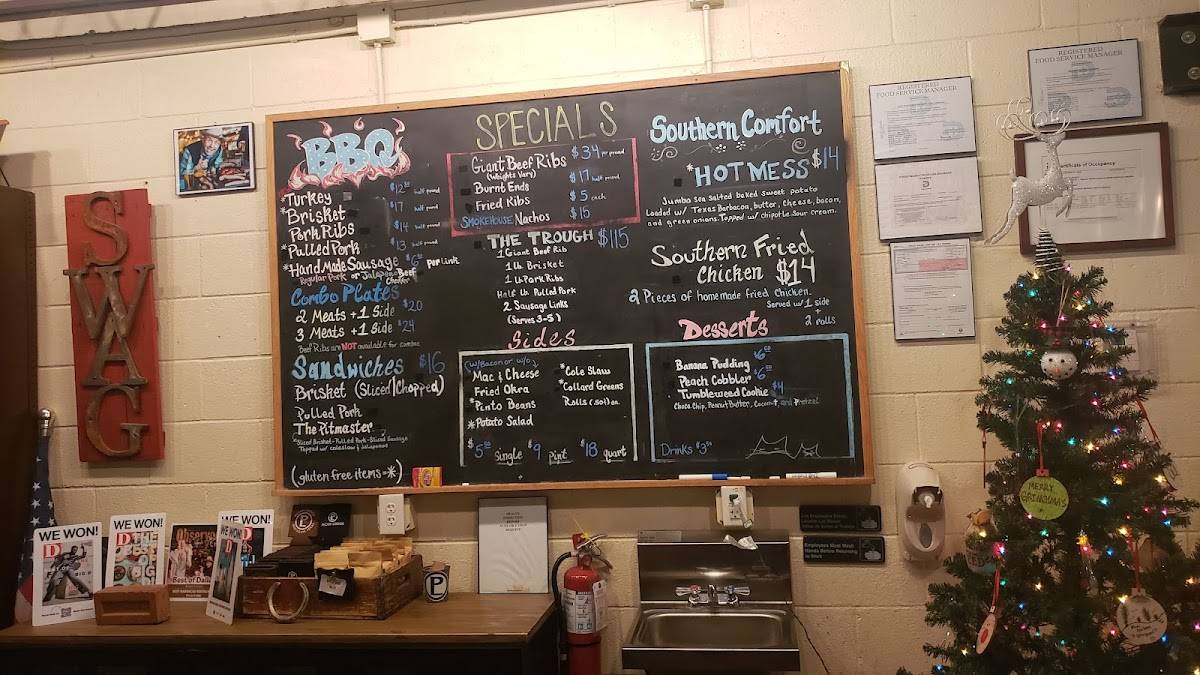 SWAG
BBQ
*Turkey $12.50 half pound
*Brisket $17 half pound
Pork Ribs $14 half pound
*Pulled Pork $13 half pound
*Hand Made Sausage $6.00 per link
Regular Pork or Jalapeno Beef Cheddar
Combo Plates
2 Meats + 1 Side $20
3 Meats + 1 Side $24
Beef Ribs are NOT available for combos
Sandwiches $16
Brisket (Sliced|Chopped)
Pulled Pork
The Pitmaster
*Sliced Brisket-Pulled Pork-Sliced Sausage
Topped w/ coleslaw & jalapenos
(gluten free items = *)
SPECIALS
Giant Beef Ribs $34 per pound
(Weights Vary)
Burnt Ends $17 half pound
Fried Ribs $5 each
SMOKEHOUSE Nachos $15
THE TROUGH $115
1 Giant Beef Rib
1 lb Brisket
1 lb Pork Ribs
Half lb Pulled Pork
2 Sausage Links
(Serves 3-5)
Sides
(w/Bacon or w/o)
Mac & Cheese
Fried Okra
*Pinto Beans
*Potato Salad
*Cole Slaw
*Collard Greens
Rolls (.50) ea.
$5.00 single $9 pint $18 quart
Southern Comfort
*HOT MESS $14
Jumbo sea salted baked sweet potato
Loaded w/ Texas Barbacoa, butter, cheese, bacon,
and green onions. Topped w/ chipotle sour cream.
Southern Fried
Chicken $14
2 Pieces of homemade fried chicken.
Served w/ 1 side
+
2 rolls
Desserts
Banana Pudding $6.00
Peach Cobbler $6.00
Tumbleweed Cookie $4
Choco Chip, Peanut Butter, Coconut, and Pretzel
Drinks $3.00
REGISTERED
FOOD SERVICE MANAGER
REGISTERED
FOOD SERVICE MANAGER
Certificate of Occupancy
WE WON!
D
WE WON!
D THE BEST OF BIG D
Observer
Best of Dallas
WE WON!
D
P
Employees Must Wash
Hands Before Returning
to Work
MERRY
GRINCHMAS